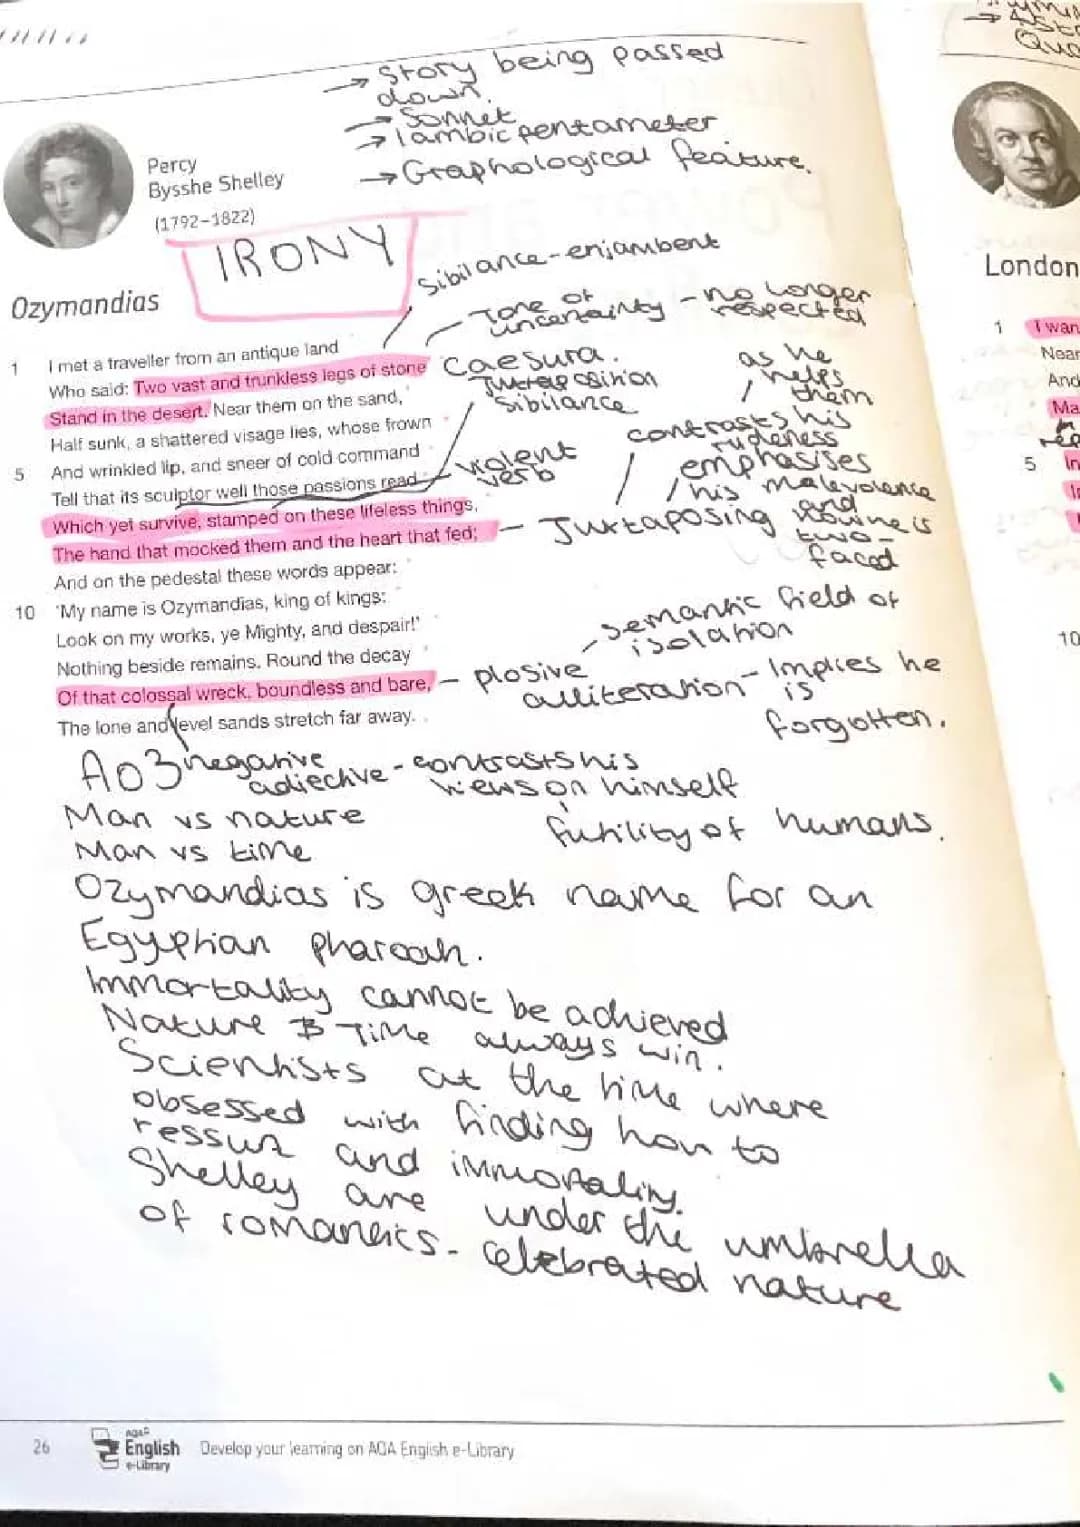 → Story being passed
down.
→ Sonnet
→ Iambic pentameter
→ Graphological feature.
Percy
Bysshe Shelley
(1792–1822)
IRONY
Sibilance - enjambent
Tone of
uncertainty - no longer
respected
Ozymandias
Caesura.
Juxtaposition
Sibilance
1 I met a traveller from an antique land
Who said: Two vast and trunkless legs of stone
Stand in the desert. Near them on the sand,
Half sunk, a shattered visage lies, whose frown
5 And wrinkled lip, and sneer of cold command
Tell that its sculptor well those passions read
Which yet survive, stamped on these lifeless things,
The hand that mocked them and the heart that fed;
And on the pedestal these words appear:
10 'My name is Ozymandias, king of kings:
Look on my works, ye Mighty, and despair!'
Nothing beside remains. Round the decay
Of that colossal wreck, boundless and bare,
The lone and level sands stretch far away.
violent
verb
as he
helps
them
contrasts his
rudeness
emphasises
his malevolence
and
Juxtaposing
is
two-
faced
semantic field of
isolation
plosive
alliteration - Implies he
is
forgotten.
Ao3
negative
adjective - contrasts his
views on himself
Man vs nature
futility of humans.
Man vs time
Ozymandias is greek name for an
Egyptian pharoah.
Immortality cannot be achieved
Nature & Time always win.
Scientists at the time where
obsessed with finding how to
and immortality.
Shelley are under the umbrella
of romantics. Celebrated nature
26
AQA
English
e-Library
Develop your learning on AQA English e-Library
London
1 I wan
Near
And
Ma
5 In
10